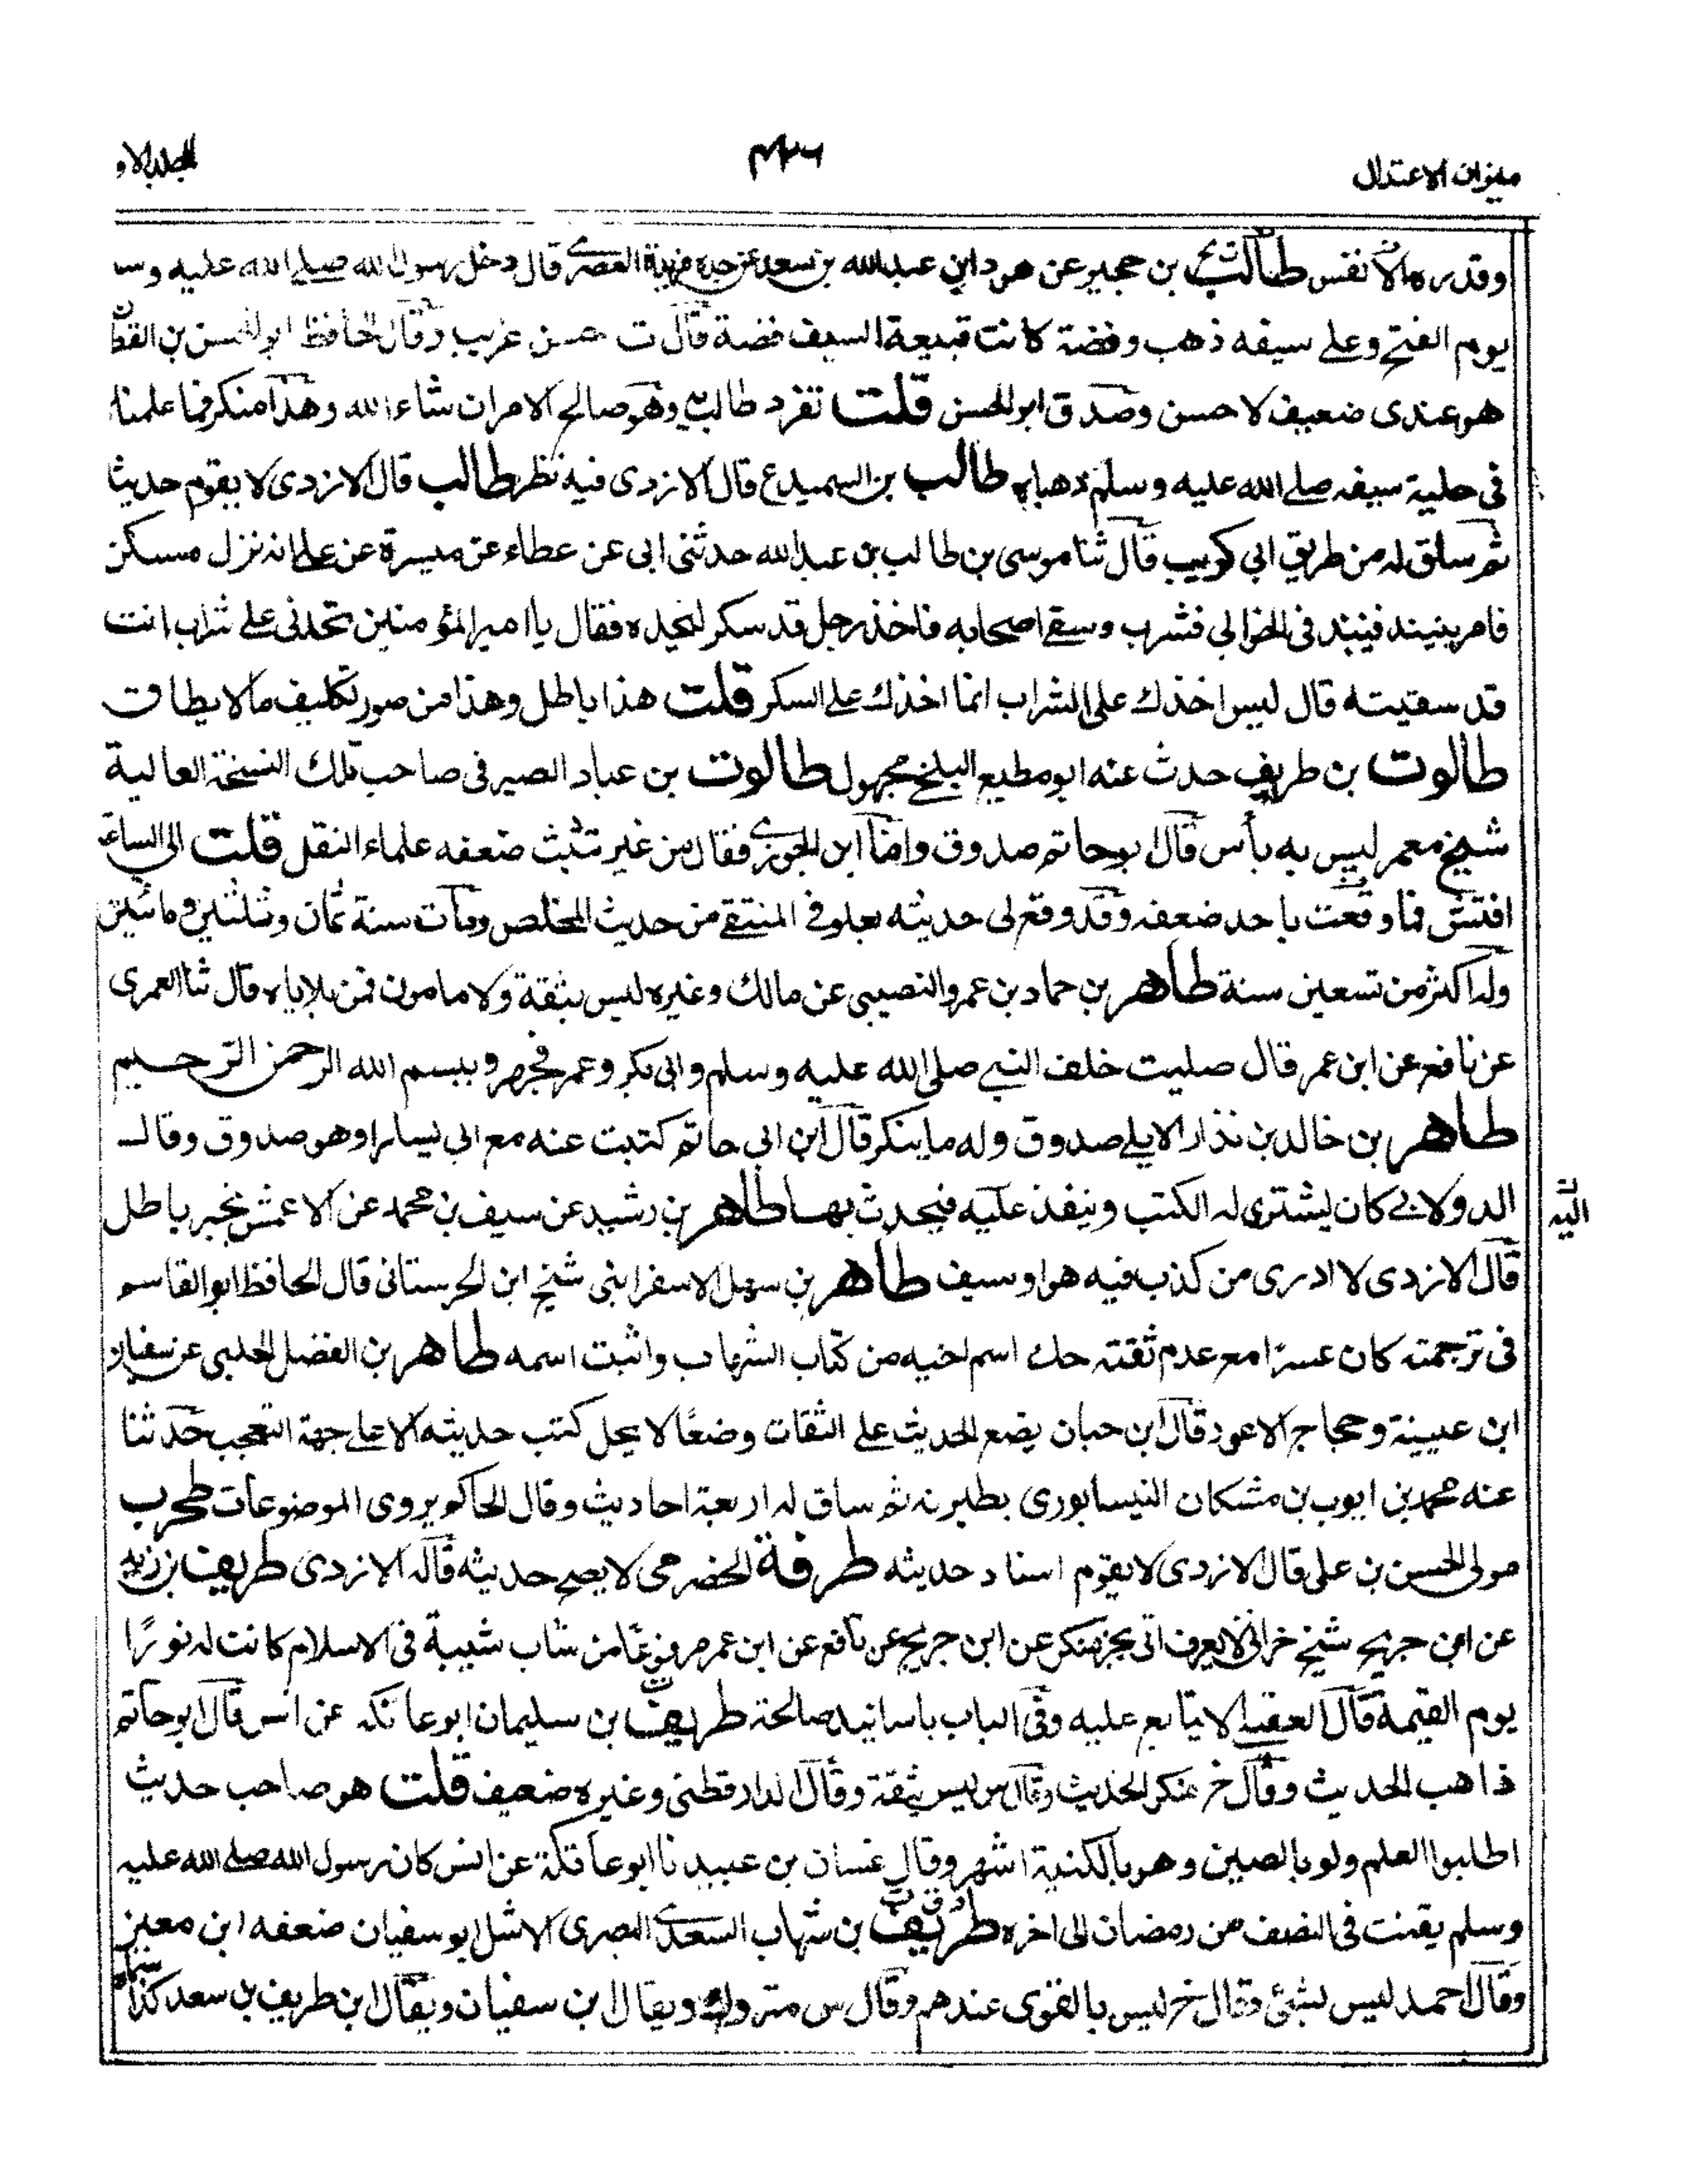 ميزان الاعتدال
٤٧٦
المجلد الاو
وقدره مالا نفس طالب بن حجير عن هود ابن عبدالله بن سعد عن جده مزيدة العصرى قال دخل رسول الله صلى الله عليه وسا
يوم الفتح وعلى سيفه ذهب وفضة كانت قبيعة السيف فضة قال ت حسن غريب وقال الحافظ ابوالحسن بن القطا
هو عندى ضعيف لا حسن وصدق ابوالحسن قلت تفرد طالب به وهو صالح الامر ان شاء الله وهذا منكر فما علمنا
فى حلية سيفه صلى الله عليه وسلم ذهبا طالب بن السميدع قال الازدى فيه نظر طالب قال الازدى لا يقوم حديثا
ثم ساق له من طريق ابى كريب قال ثنا موسى بن طالب بن عبدالله حدثنى ابى عن عطاء عن ميسرة عن على انه نزل مسكن
فامر بنبيذ فينبذ فى الخوابى فشرب وسقى اصحابه فاخذ رجل قد سكر ليحده فقال يا امير المؤمنين تحدنى على شراب انت
قد سقيته قال ليس اخذك على الشراب انما اخذك على السكر قلت هذا باطل وهذا من صور تكليف مالا يطاق
طالوت بن طريف حدث عنه ابو مطيع البلخى مجهول طالوت بن عباد الصيرفى صاحب تلك النسخة العالية
شيخ معمر ليس به بأس قال ابوحاتم صدوق واما ابن الجوزى فقال من غير تثبت ضعفه علماء النقل قلت الى الساعة
افتش فما وقعت باحد ضعفه وقد وقع لى حديثه بعلو فى المنتقى من حديث المخلص ومات سنة ثمان وثلثين ومائتين
وله اكثر من تسعين سنة طاهر بن حماد بن عمرو النصيبى عن مالك وغيره ليس بثقة ولا مامون فمن بلاياه قال ثنا العمرى
عن نافع عن ابن عمر قال صليت خلف النبى صلى الله عليه وسلم وابى بكر وعمر فجهروا ببسم الله الرحمن الرحيم
طاهر بن خالد بن نزار الايلى صدوق وله ما ينكر قال ابن ابى حاتم كتبت عنه مع ابى بسامرا وهو صدوق وقال
الدولابى كان يشترى له الكتب وينفذ عليه فيحدث بها طاهر بن رشيد عن سيف بن محمد عن الاعمش بخبر باطل
اليه
قال الازدى لا ادرى من كذب فيه هو او سيف طاهر بن سهل الاسفراينى شيخ ابن الحرستانى قال الحافظ ابو القاسم
فى ترجمته كان عسرا مع عدم ثقته حك اسم اخيه من كتاب الشهاب واثبت اسمه طاهر بن الفضل الحلبى عن سفيان
ابن عيينة وحجاج الاعور قال ابن حبان يضع الحديث على الثقات وضعًا لا يحل كتب حديثه الا على جهة التعجب حدثنا
عنه محمد بن ايوب بن مشكان النيسابورى بطبرية ثم ساق له اربعة احاديث وقال الحاكم يروى الموضوعات طحرب
مولى الحسن بن على قال الازدى لا يقوم اسناد حديثه طرفة الحضرمى لا يصح حديثه قاله الازدى طريف بن زيد
عن ابن جريج شيخ حرانى لا يعرف اتى بخبر منكر عن ابن جريج عن نافع عن ابن عمر مرفوعًا من شاب شيبة فى الاسلام كانت له نورًا
يوم القيمة قال العقيلى لا يتابع عليه وفى الباب باسانيد صالحة طريف بن سليمان ابو عاتكه عن انس قال ابوحاتم
ذاهب الحديث وقال خ منكر الحديث وقال س ليس بثقة وقال الدارقطنى وغيره ضعيف قلت هو صاحب حديث
اطلبوا العلم ولو بالصين وهو بالكنية اشهر وقال غسان بن عبيد نا ابوعاتكة عن انس كان رسول الله صلى الله عليه
وسلم يقنت فى النصف من رمضان الى اخره طريف بن شهاب السعدى البصرى الاشل ابو سفيان ضعفه ابن معين
وقال احمد ليس بشئ وقال خ ليس بالقوى عندهم وقال س متروك ويقال ابن سفيان ويقال ابن طريف بن سعد كذا